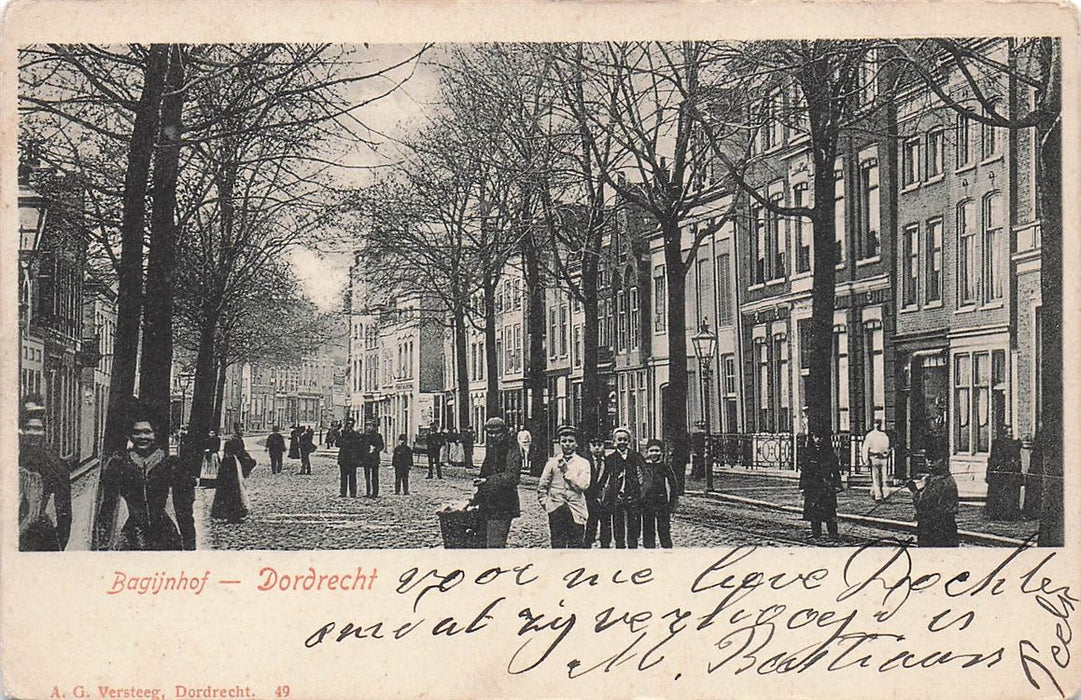 Bagijnhof — Dordrecht
voor me love Dochter
omdat zij verhoogd is
M. Bastiaans
A. G. Versteeg, Dordrecht. 49